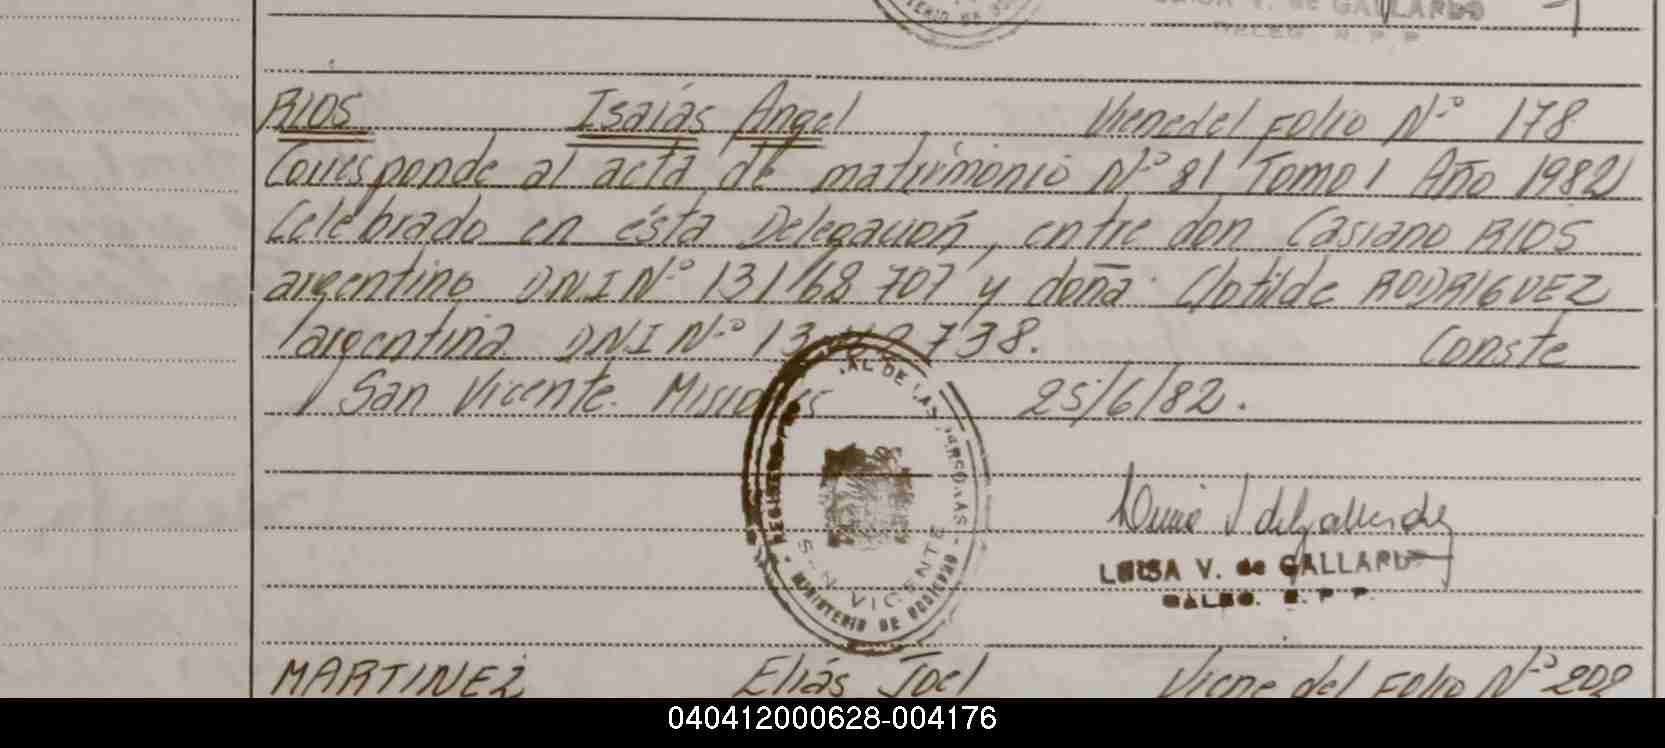 LUISA V. de GALLARDO
RIOS Isaías Angel Viene del Folio Nº 178
Corresponde al acta de matrimonio Nº 81 Tomo 1 Año 1982
Celebrado en ésta Delegación, entre don Casiano RIOS
argentino DNI Nº 13/168.707 y doña Clotilde RODRIGUEZ
argentina DNI Nº 13 738. Conste
San Vicente. Misiones 25/6/82.
REGISTRO AL DE LAS PERSONAS
SAN VICENTE
MINISTERIO DE GOBIERNO
LUISA V. de GALLARDO
MARTINEZ Elías Joel Viene del Folio Nº 202
040412000628-004176